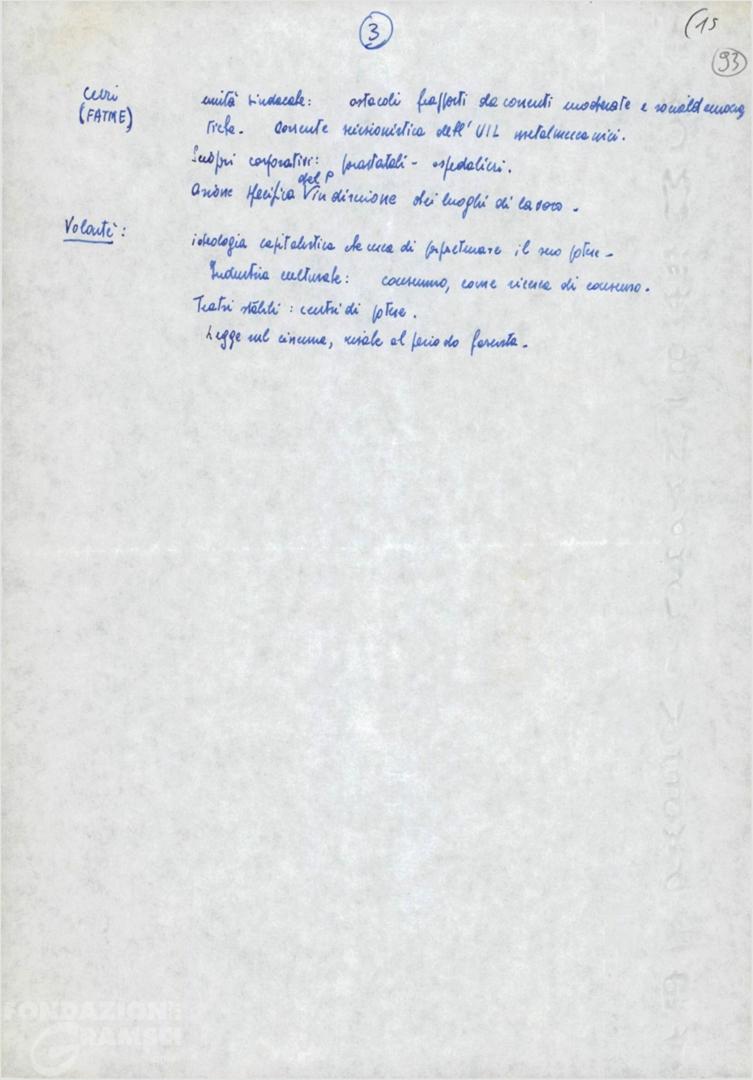 3
(15
93
Ceuri
(FATME)
unità sindacale: ostacoli frapposti da correnti moderate e socialdemocra
tiche. Corrente scissionistica dell'UIL metalmeccanici.
Scioperi corporativi: parastatali - ospedalieri.
del P
Azione specifica V in direzione dei luoghi di lavoro.
Volontè:
ideologia capitalistica che cerca di perpetuare il suo potere.
Industria culturale: consumo, come ricerca di consenso.
Teatri stabili: centri di potere.
Legge sul cinema, risale al periodo fascista.
FONDAZIONE
GRAMSCI